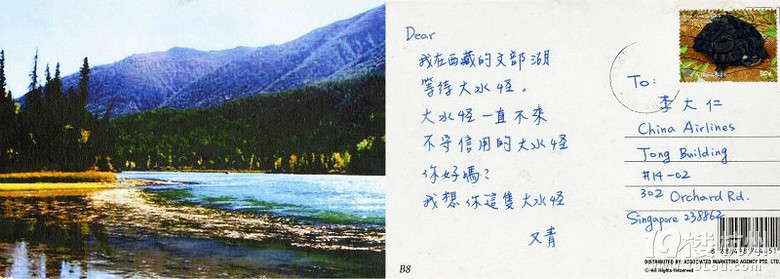 Dear
我在西藏的文部湖
等待大水怪。
大水怪一直不來
不守信用的大水怪
你好嗎?
我想你這隻大水怪
又青
B8
To:
李大仁
China Airlines
Tong Building
#14-02
302 Orchard Rd.
Singapore 238862
DISTRIBUTED BY: ASSOCIATED MARKETING AGENCY PTE. LTD.
© All Rights Reserved